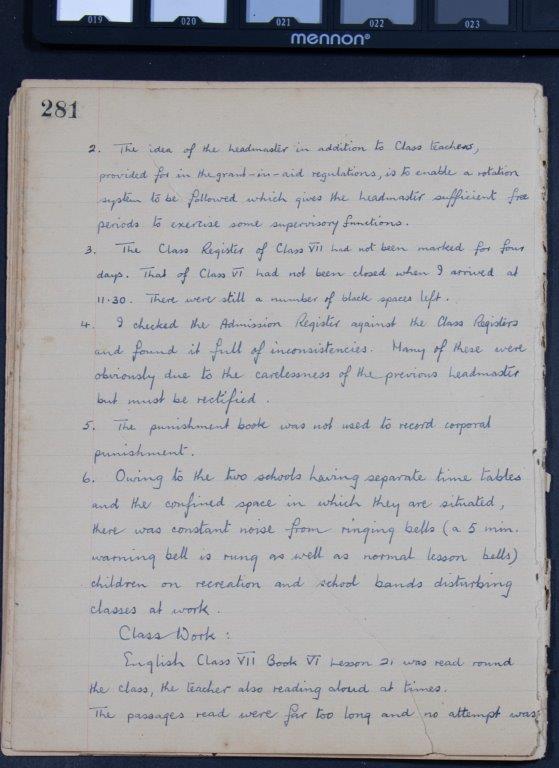 019 020 021 022 023
mennon®
281
2. The idea of the headmaster in addition to Class teachers,
provided for in the grant-in-aid regulations, is to enable a rotation
system to be followed which gives the headmaster sufficient free
periods to exercise some supervisory functions.
3. The Class Register of Class VII had not been marked for four
days. That of Class VI had not been closed when I arrived at
11.30. There were still a number of black spaces left.
4. I checked the Admission Register against the Class Registers
and found it full of inconsistencies. Many of these were
obviously due to the carelessness of the previous headmaster
but must be rectified.
5. The punishment book was not used to record corporal
punishment.
6. Owing to the two schools having separate time tables
and the confined space in which they are situated,
there was constant noise from ringing bells (a 5 min.
warning bell is rung as well as normal lesson bells)
children on recreation and school bands disturbing
classes at work.
Class Work:
English Class VII Book VI Lesson 21 was read round
the class, the teacher also reading aloud at times.
The passages read were far too long and no attempt was